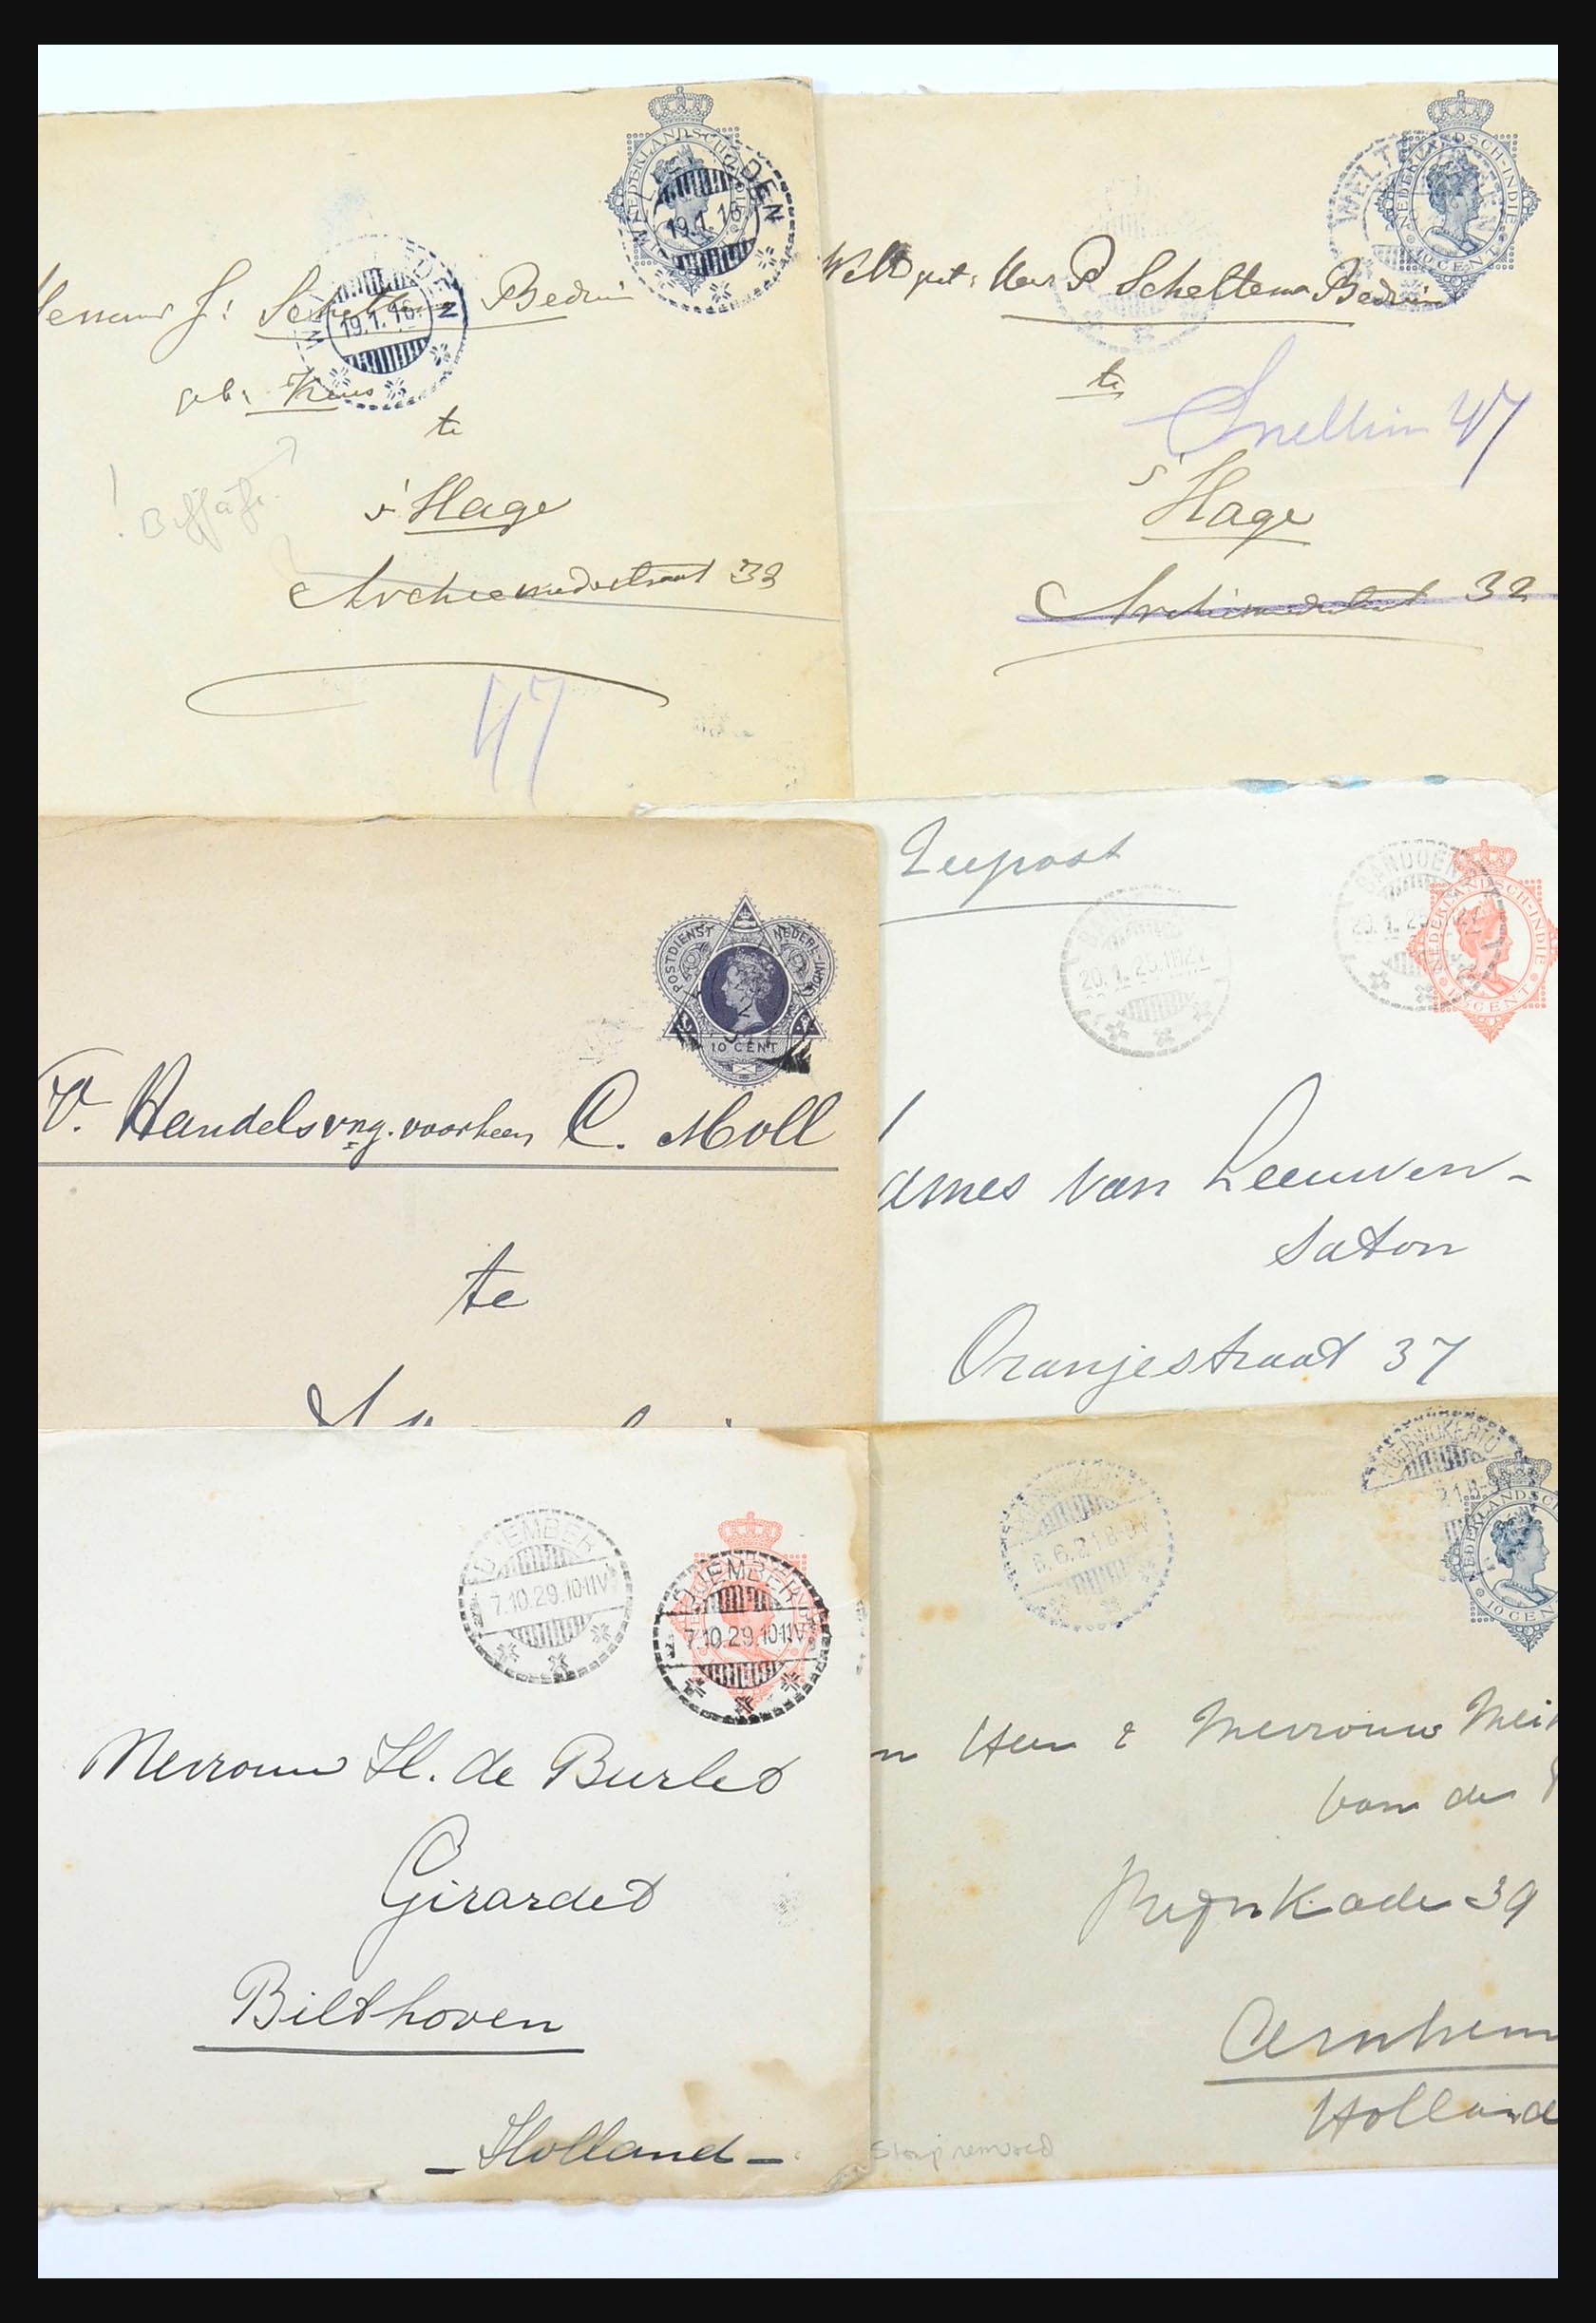 NEDERLANDSCH-INDIE
WELTEVREDEN
19.1.16
19.1.16
J: Scheltema Bedin
geb:
te
's Hage
Archimedesstraat 32
47
NEDERLANDSCH-INDIE
10 CENT
P Scheltema Bedin
te
Snellin 47
's Hage
Archimedesstraat 32
POSTDIENST NEDERL-INDIE
10 CENT
V. Handelsvng. voorheen C. Moll
te
Zeepost
BANDOENG
20.1.25.
20.1.25.
NEDERLANDSCH-INDIE
CENT
ames van Leeuwen-
Saton
Oranjestraat 37
DJEMBER
7.10.29.10-11V
DJEMBER
7.10.29.10-11V
Mevrouw H. de Burlet
Girardet
Bilthoven
- Holland -
POERWOKERTO
6.6.21.8-9V
NEDERLANDSCH
10 CEN
n Heer & Mevrouw Mei
van der
Rijnkade 39
Arnhem
Holland
Stamp removed